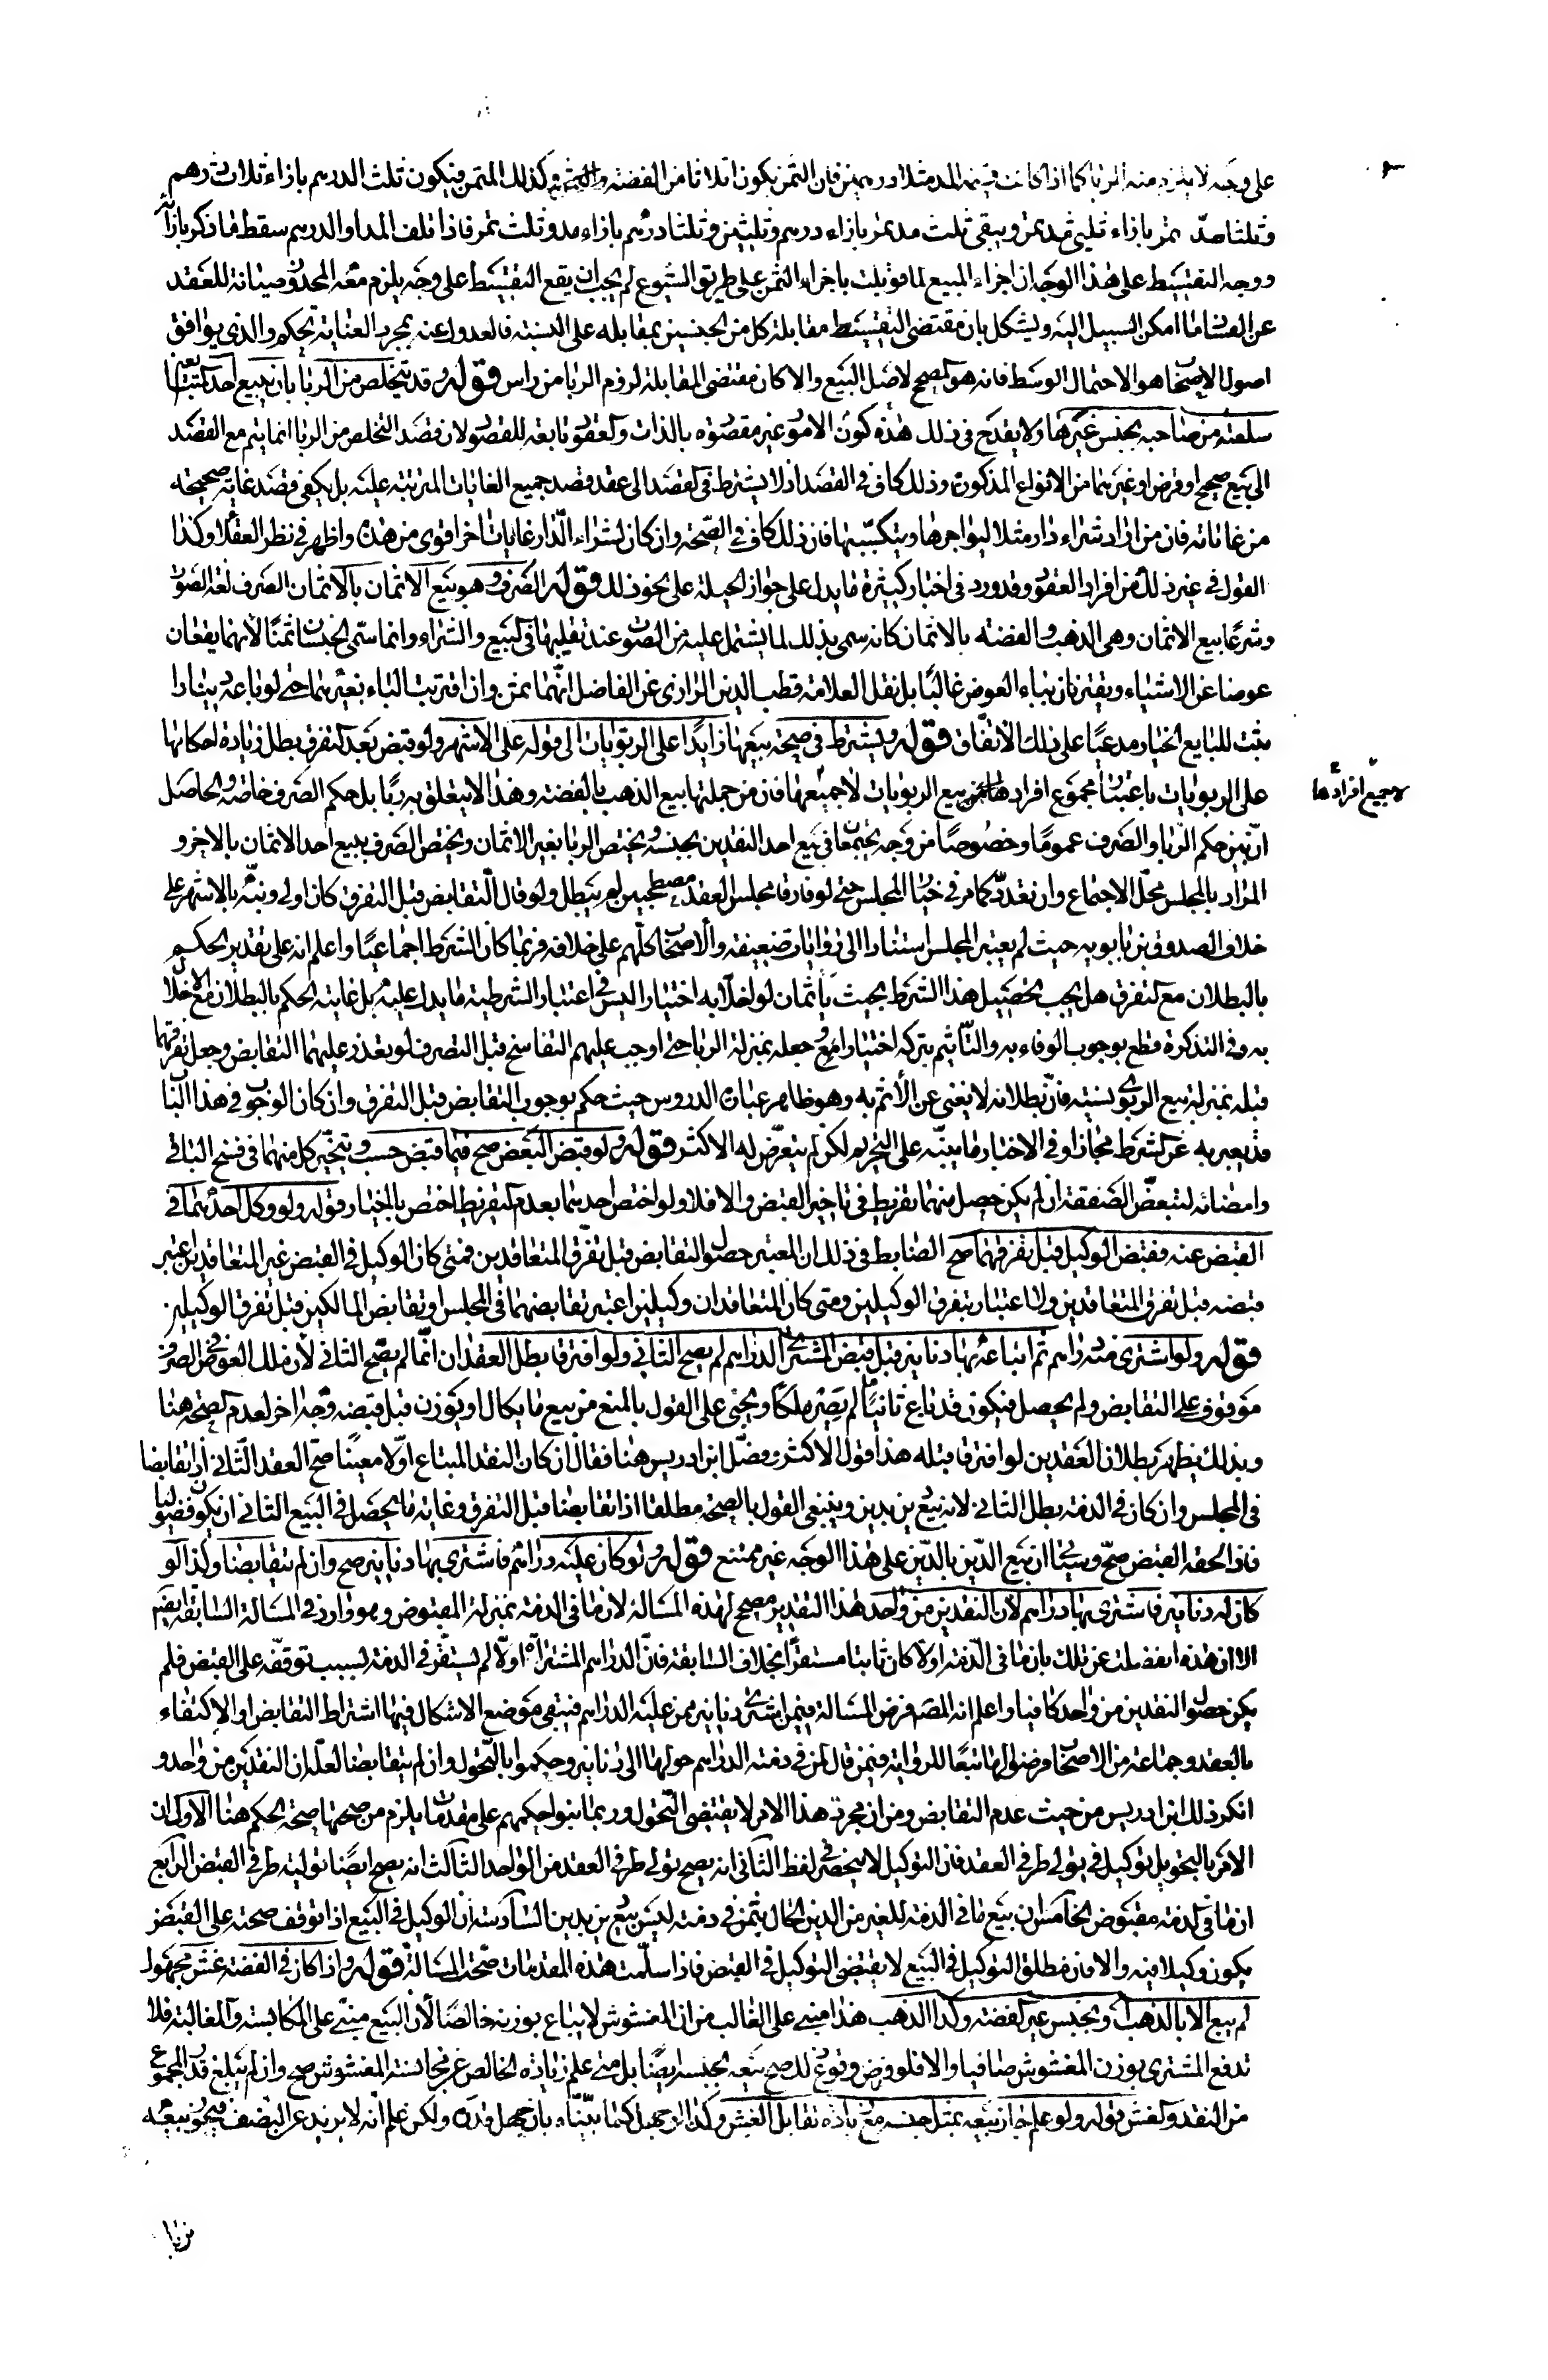 على وجه لا يلزم منه الربا كما اذا كانت قيمة المد مثلا درهمين فان الثمن يكون اثلاثا من الفضة وكذلك المثمن فيكون ثلث الدرهم بازاء ثلاث درهم
وثلثا مدّ تمر بازاء ثلثي مد تمر ويبقى ثلث مد تمر بازاء درهم وثلثين وثلثا درهم بازاء مد وثلث تمر فاذا تلف المد او الدرهم سقط ما ذكر بازائه
ووجه التقسيط على هذا الوجه ان اجزاء المبيع لما قوبلت باجزاء الثمن على طريق الشيوع لم يجب ان يقع التقسيط على وجه يلزم معه المحذور صيانة للعقد
عن الفساد ما امكن السبيل اليه ويشكل بان مقتضى التقسيط مقابلة كل من الجنسين بمقابله على النسبة فالعدول عنه بمجرد العناية تحكم والذي يوافق
اصول الاصحاب هو الاحتمال الوسط فانه هو المصحح لاصل البيع والا كان مقتضى المقابلة لزوم الربا من راس قوله وقد يتخلص من الربا بان يبيع احد المتبايعين
سلعته من صاحبه بجنس غيرها ولا يقدح في ذلك هذه كون الامور غير مقصودة بالذات والعقود تابعة للقصود لان قصد التخلص من الربا انما يتم مع القصد
الى بيع صحيح او قرض او غيرهما من الانواع المذكورة وذلك كاف في القصد اذ لا يشترط في القصد الى عقد قصد جميع الغايات المترتبة عليه بل يكفي قصد غاية صحيحة
من غاياته فان من اراد شراء دار مثلا ليواجرها ويتكسب بها فان ذلك كاف في الصحة وان كان لشراء الدار غايات اخر اقوى من هذه واظهر في نظر العقلا وكذا
القول في غير ذلك من افراد العقود وقد ورد في اخبار كثيرة ما يدل على جواز الحيلة على نحو ذلك قوله الصرف وهو بيع الاثمان بالاثمان الصرف لغة الصوت
وشرعا بيع الاثمان وهي الذهب والفضة بالاثمان كانه سمى بذلك لما يشتمل عليه من الصوت عند تقليبها في البيع والشراء وانما سمى الجنسان ثمنا لانهما يقعان
عوضا عن الاشياء ويقترنان بباء العوض غالبا بل نقل العلامة قطب الدين الرازي عن الفاضل انهما ثمن وان اقترنت الباء بغيرهما حتى لو باعه دينارا
ثبت للبايع الخيار مدعيا على ذلك الاتفاق قوله ويشترط في صحة بيعها زايدا على الربويات الى قوله على الاشهر ولو قبض بعد التفرق بطل زيادة احكامها
على الربويات باعتبار مجموع افرادها بيع الربويات لا جميعها فان من جملتها بيع الذهب بالفضة وهذا لا يتعلق به ربا بل حكم الصرف خاصة والحاصل
لا جميع افرادها
ان بين حكم الربا والصرف عموما وخصوصا من وجه يجتمعان في بيع احد النقدين بجنسه ويختص الربا بغير الاثمان ويختص الصرف ببيع احد الاثمان بالاخر و
المراد بالمجلس محل الاجتماع وان تعدد كما مر في خيار المجلس حتى لو فارقا مجلس العقد مصطحبين لم يبطل ولو قال التقابض قبل التفرق كان اولى ونبه بالاشهر على
خلاف الصدوق بن بابويه حيث لم يعتبر المجلس استنادا الى روايات ضعيفة والاصحاب كلهم على خلافه فربما كان الشرط اجماعيا واعلم انه على تقدير الحكم
بالبطلان مع التفرق هل يجب تحصيل هذا الشرط بحيث ياثمان لو اخلا به اختيارا ليس في اعتبار الشرطية ما يدل عليه بل غايته الحكم بالبطلان مع الاخلال
به وفي التذكرة قطع بوجوب الوفاء به والتاثيم بتركه اختيارا وجعله بمنزلة الربا حتى اوجب عليهم التفاسخ قبل التصرف لو تعذر عليهما التقابض وجعل تفرقهما
قبله بمنزلة بيع الربوي نسيئة فان بطلانه لا يغني عن الاثم به وهو ظاهر عبارة الدروس حيث حكم بوجوب التقابض قبل التفرق وان كان الوجوب في هذا الباب
قد يعبر به عن الشرط مجازا وفي الاخبار ما ينبه على التحريم لكن لم يتعرض له الاكثر قوله ولو قبض البعض صح فيما قبض حسب ويتخير كل منهما في فسخ الباقي
وامضائه لتبعض الصفقة ان لم يكن حصل منهما تفريط في تاخير القبض والا فلا ولو اختص احدهما بعدم التفريط اختص بالخيار قوله ولو وكل احدهما في
القبض عنه فقبض الوكيل قبل تفرقهما صح الضابط في ذلك ان المعتبر حصول التقابض قبل تفرق المتعاقدين فمتى كان الوكيل في القبض غير المتعاقدين اعتبر
قبضه قبل تفرق المتعاقدين ولا اعتبار بتفرق الوكيلين ومتى كان المتعاقدان وكيلين اعتبر تقابضهما في المجلس او تقابض المالكين قبل تفرق الوكيلين
قوله ولو اشترى منه دراهم ثم ابتاع بها دنانير قبل قبض المشترى الدراهم لم يصح الثاني ولو افترقا بطل العقدان انما لم يصح الثاني لان ملك العوض في الصرف
موقوف على التقابض ولم يحصل فيكون قد باع ثانيا ما لم يصر ملكا ويجئ على القول بالمنع من بيع ما يكال او يوزن قبل قبضه وجه اخر لعدم الصحة هنا
وبذلك يظهر بطلان العقدين لو افترقا قبله هذا قول الاكثر وفصل ابن ادريس هنا فقال ان كان النقد المبتاع اولا معينا صح العقد الثاني اذا تقابضا
في المجلس وان كان في الذمة بطل الثاني لانه بيع دين بدين وينبغي القول بالصحة مطلقا اذا تقابضا قبل التفرق وغاية ما يحصل في البيع الثاني ان يكون فضوليا
فاذا لحقه القبض صح وسياتي ان بيع الدين بالدين على هذا الوجه غير ممتنع قوله ولو كان عليه دراهم فاشترى بها دنانير صح وان لم يتقابضا وكذا لو
كان له دنانير فاشترى بها دراهم لان النقدين من واحد هذا التقدير مصحح لهذه المسالة لان ما في الذمة بمنزلة المقبوض وهو وارد في المسالة السابقة ايضا
الا ان هذه انفصلت عن تلك بان ما في الذمة اولا كان ثابتا مستقرا بخلاف السابقة فان الدراهم المشتراة اولا لم تستقر في الذمة بسبب توقفه على القبض فلم
يكن حصول النقدين من واحد كافيا واعلم ان المصنف فرض المسالة فيمن اشترى دنانير ممن عليه الدراهم فيبقى موضع الاشكال فيها اشتراط التقابض او الاكتفاء
بالعقد وجماعة من الاصحاب فرضوها تبعا للرواية فيمن قال لمن في ذمته الدراهم حولها الى دنانير وحكموا بالتحول وان لم يتقابضا لعلة ان النقدين من واحد و
انكر ذلك ابن ادريس من حيث عدم التقابض ومن ان مجرد هذا الامر لا يقتضي التحول وربما بنوا حكمهم على مقدمات يلزم من صحتها صحة الحكم هنا الاول ان
الامر بالتحويل توكيل في تولي طرفي العقد فان التوكيل لا ينحصر في لفظ الثاني انه يصح تولي طرفي العقد من الواحد الثالث انه يصح ايضا توليه طرفي القبض الرابع
ان ما في الذمة مقبوض الخامس ان بيع ما في الذمة للغير من الدين الحال بثمن في ذمته ليس بيع دين بدين السادسة ان الوكيل في البيع اذا توقف صحته على القبض
يكون وكيلا فيه والا فان مطلق التوكيل في البيع لا يقتضي التوكيل في القبض فاذا سلمت هذه المقدمات صحت المسالة قوله واذا كان في الفضة غش مجهول
لم يبع الا بالذهب او بجنس غير الفضة وكذا الذهب هذا مبني على الغالب من ان المغشوش لا يباع بوزنه خالصا لان البيع مبني على المكايسة والمغالبة فلا
تدفع المشتري بوزن المغشوش صافيا والا فلو فرض وقوع ذلك صح بيعه بجنسه ايضا بل متى علم زيادة الخالص عن مجانسه المغشوش صح وان لم يبلغ قدر المجموع
من النقد والغش قوله ولو علم جاز بيعه بمثل جنسه مع زيادة تقابل الغش وكذا لو جهل كما بيناه بان جهل قدره ولكن علم انه لا يزيد عن النصف فيجوز بيعه